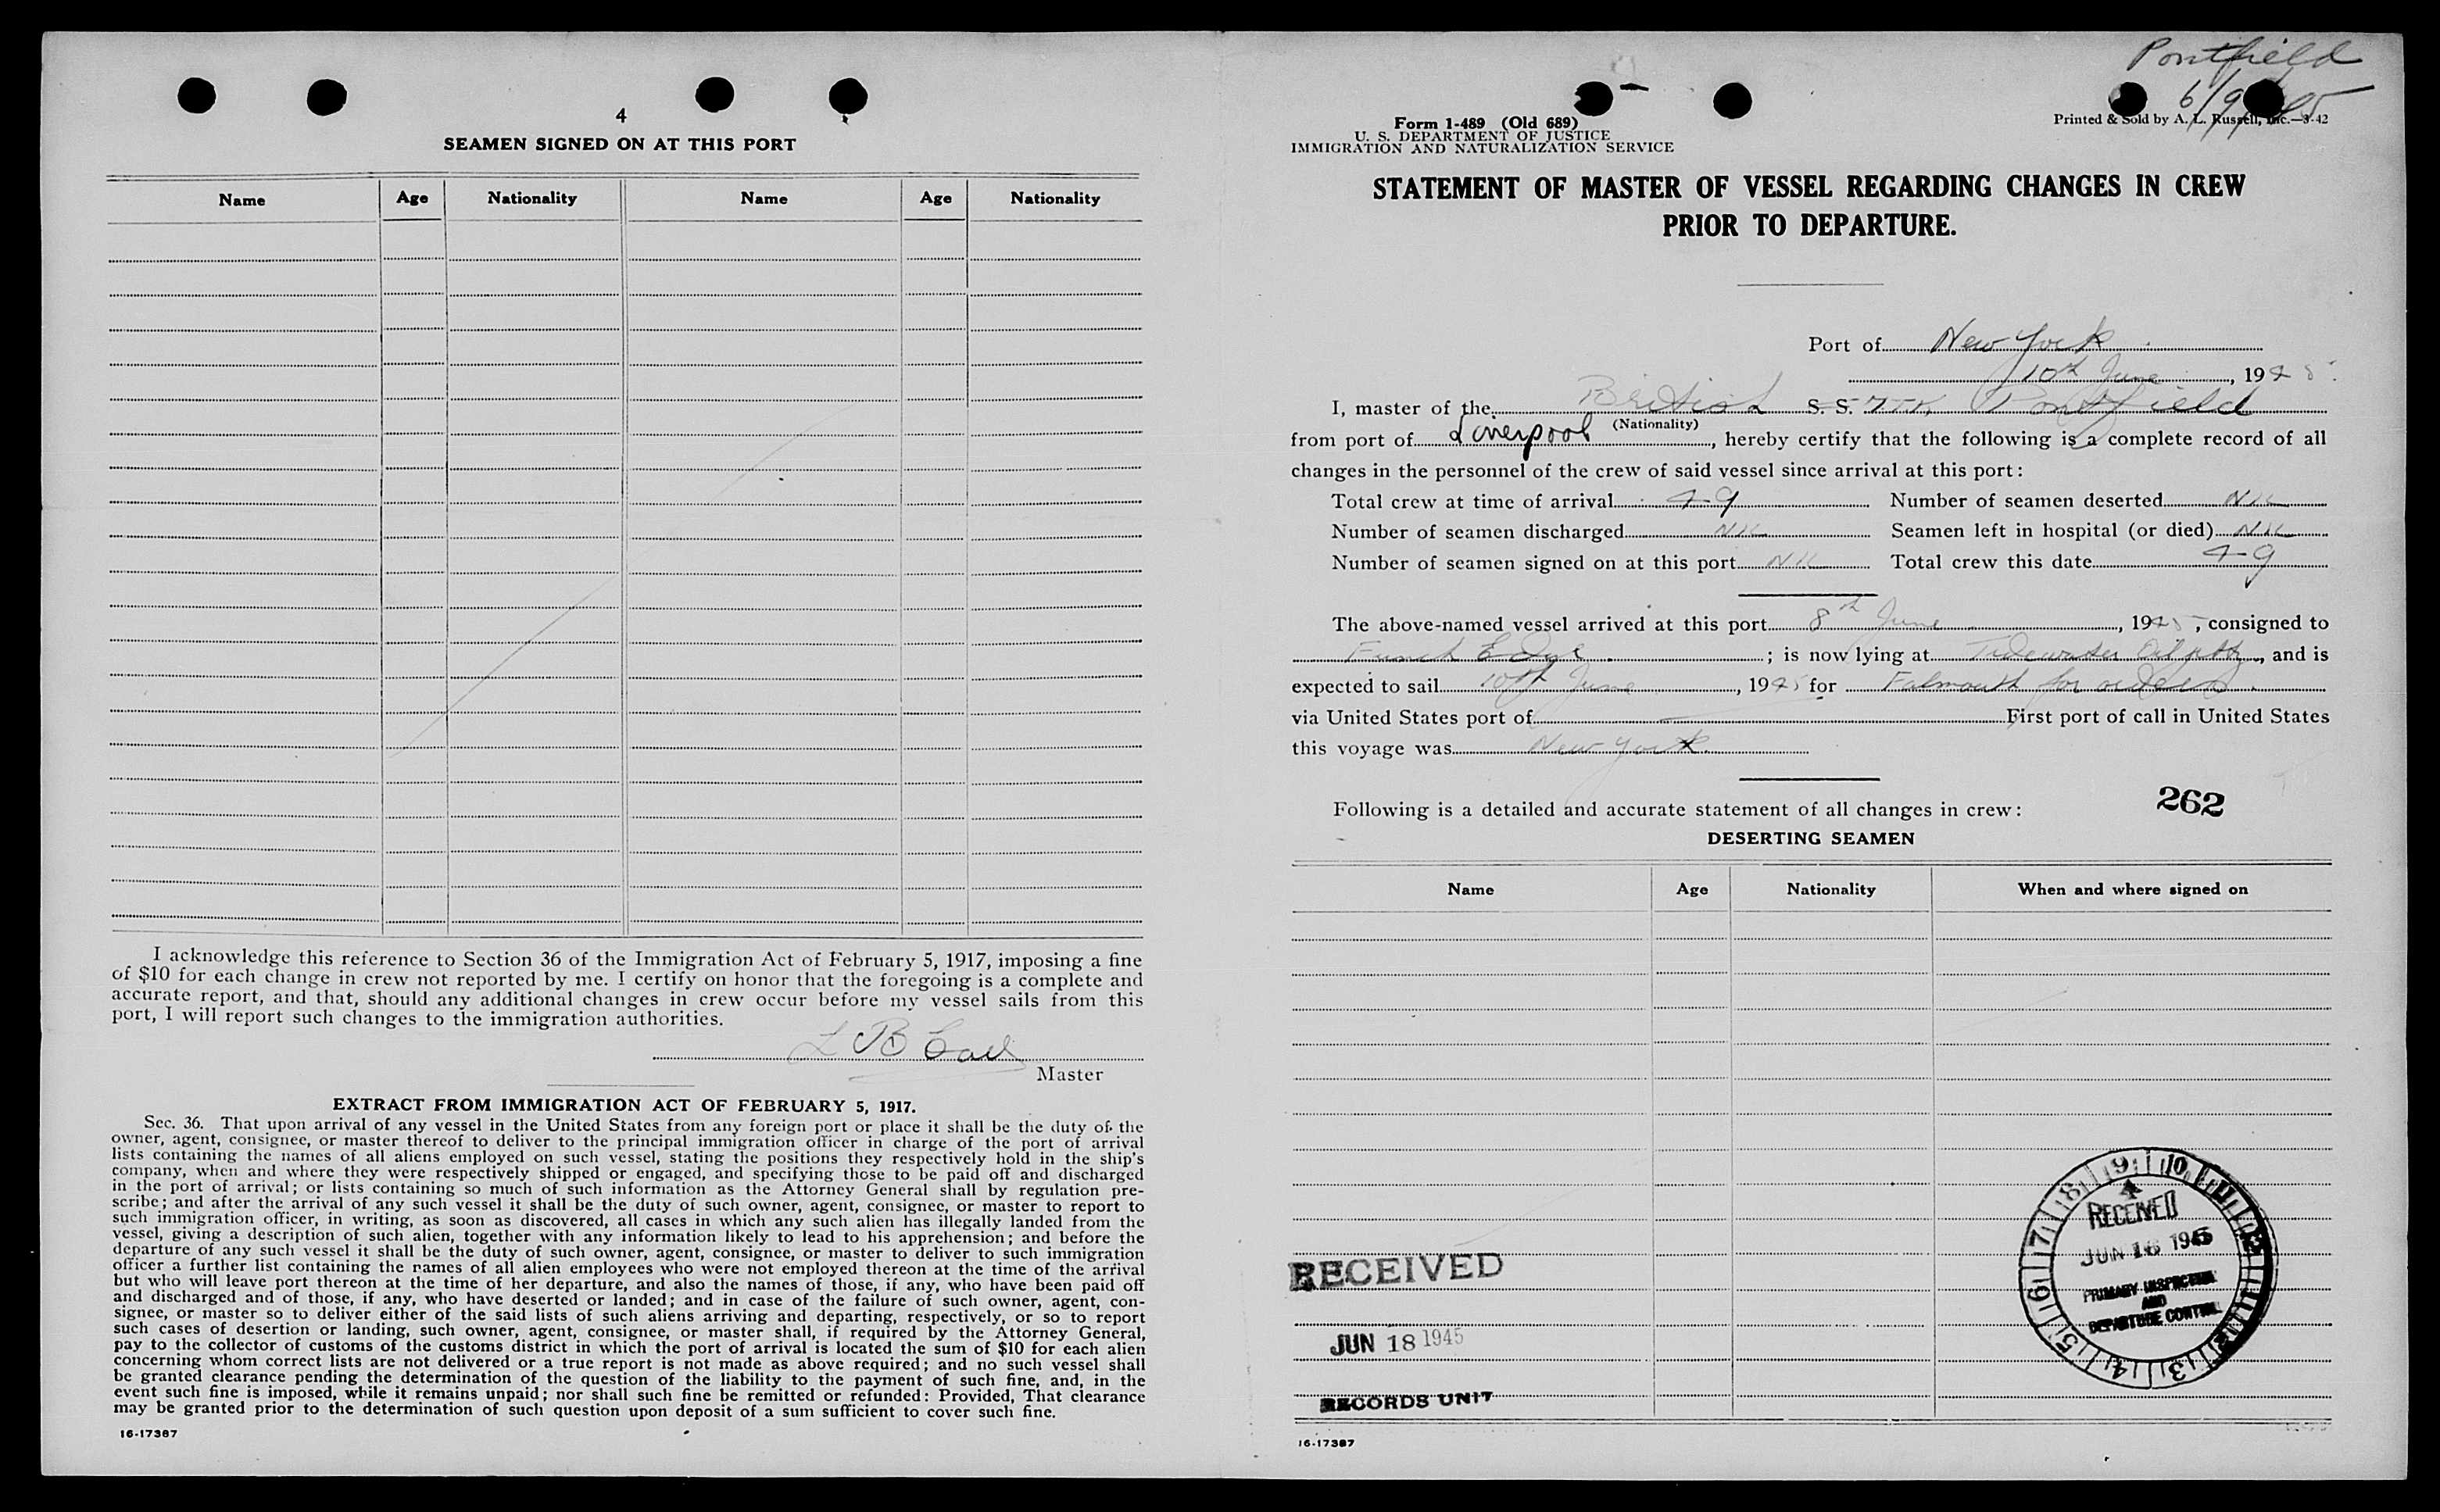 4
SEAMEN SIGNED ON AT THIS PORT
Name Age Nationality Name Age Nationality
I acknowledge this reference to Section 36 of the Immigration Act of February 5, 1917, imposing a fine
of $10 for each change in crew not reported by me. I certify on honor that the foregoing is a complete and
accurate report, and that, should any additional changes in crew occur before my vessel sails from this
port, I will report such changes to the immigration authorities.
L B
Master
EXTRACT FROM IMMIGRATION ACT OF FEBRUARY 5, 1917.
Sec. 36. That upon arrival of any vessel in the United States from any foreign port or place it shall be the duty of the
owner, agent, consignee, or master thereof to deliver to the principal immigration officer in charge of the port of arrival
lists containing the names of all aliens employed on such vessel, stating the positions they respectively hold in the ship's
company, when and where they were respectively shipped or engaged, and specifying those to be paid off and discharged
in the port of arrival; or lists containing so much of such information as the Attorney General shall by regulation pre-
scribe; and after the arrival of any such vessel it shall be the duty of such owner, agent, consignee, or master to report to
such immigration officer, in writing, as soon as discovered, all cases in which any such alien has illegally landed from the
vessel, giving a description of such alien, together with any information likely to lead to his apprehension; and before the
departure of any such vessel it shall be the duty of such owner, agent, consignee, or master to deliver to such immigration
officer a further list containing the names of all alien employees who were not employed thereon at the time of the arrival
but who will leave port thereon at the time of her departure, and also the names of those, if any, who have been paid off
and discharged and of those, if any, who have deserted or landed; and in case of the failure of such owner, agent, con-
signee, or master so to deliver either of the said lists of such aliens arriving and departing, respectively, or so to report
such cases of desertion or landing, such owner, agent, consignee, or master shall, if required by the Attorney General,
pay to the collector of customs of the customs district in which the port of arrival is located the sum of $10 for each alien
concerning whom correct lists are not delivered or a true report is not made as above required; and no such vessel shall
be granted clearance pending the determination of the question of the liability to the payment of such fine, and, in the
event such fine is imposed, while it remains unpaid; nor shall such fine be remitted or refunded: Provided, That clearance
may be granted prior to the determination of such question upon deposit of a sum sufficient to cover such fine.
16-17387
Pontfield
6/9/45
Form 1-489 (Old 689)
U. S. DEPARTMENT OF JUSTICE
IMMIGRATION AND NATURALIZATION SERVICE
Printed & Sold by A. L. Russell, Inc.—3-42
STATEMENT OF MASTER OF VESSEL REGARDING CHANGES IN CREW
PRIOR TO DEPARTURE.
Port of New York
10th June, 1945
I, master of the British S. S. Pontfield
(Nationality)
from port of Liverpool, hereby certify that the following is a complete record of all
changes in the personnel of the crew of said vessel since arrival at this port:
Total crew at time of arrival 49 Number of seamen deserted Nil
Number of seamen discharged Nil Seamen left in hospital (or died) Nil
Number of seamen signed on at this port Nil Total crew this date 49
The above-named vessel arrived at this port 8th June, 1945, consigned to
Funch Edye; is now lying at Tidewater Oil, and is
expected to sail 10th June, 1945 for Falmouth for orders
via United States port of First port of call in United States
this voyage was New York
262
Following is a detailed and accurate statement of all changes in crew:
DESERTING SEAMEN
Name Age Nationality When and where signed on
RECEIVED
JUN 18 1945
RECORDS UNIT
RECEIVED
JUN 16 1945
PRIMARY INSPECTION
AND
DEPARTURE CONTROL
16-17387